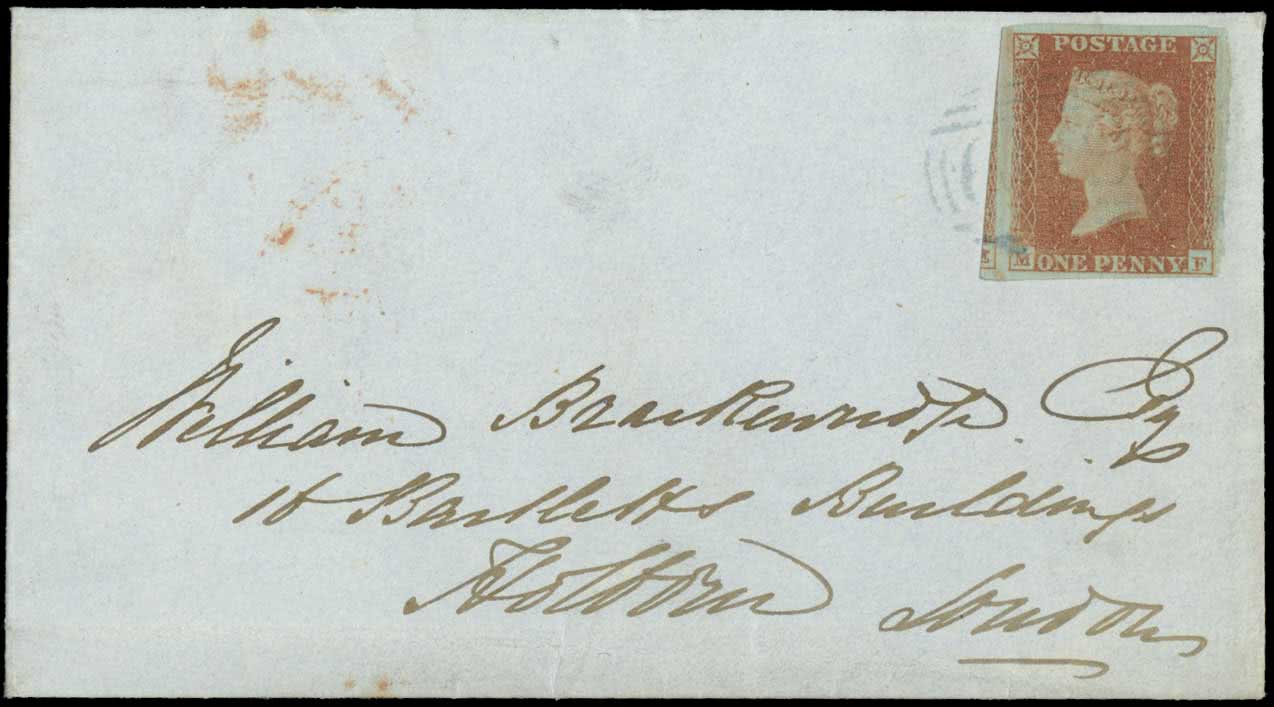 POSTAGE
E M ONE PENNY F
William Brackenridge Esq
16 Bartletts Buildings
Holborn London